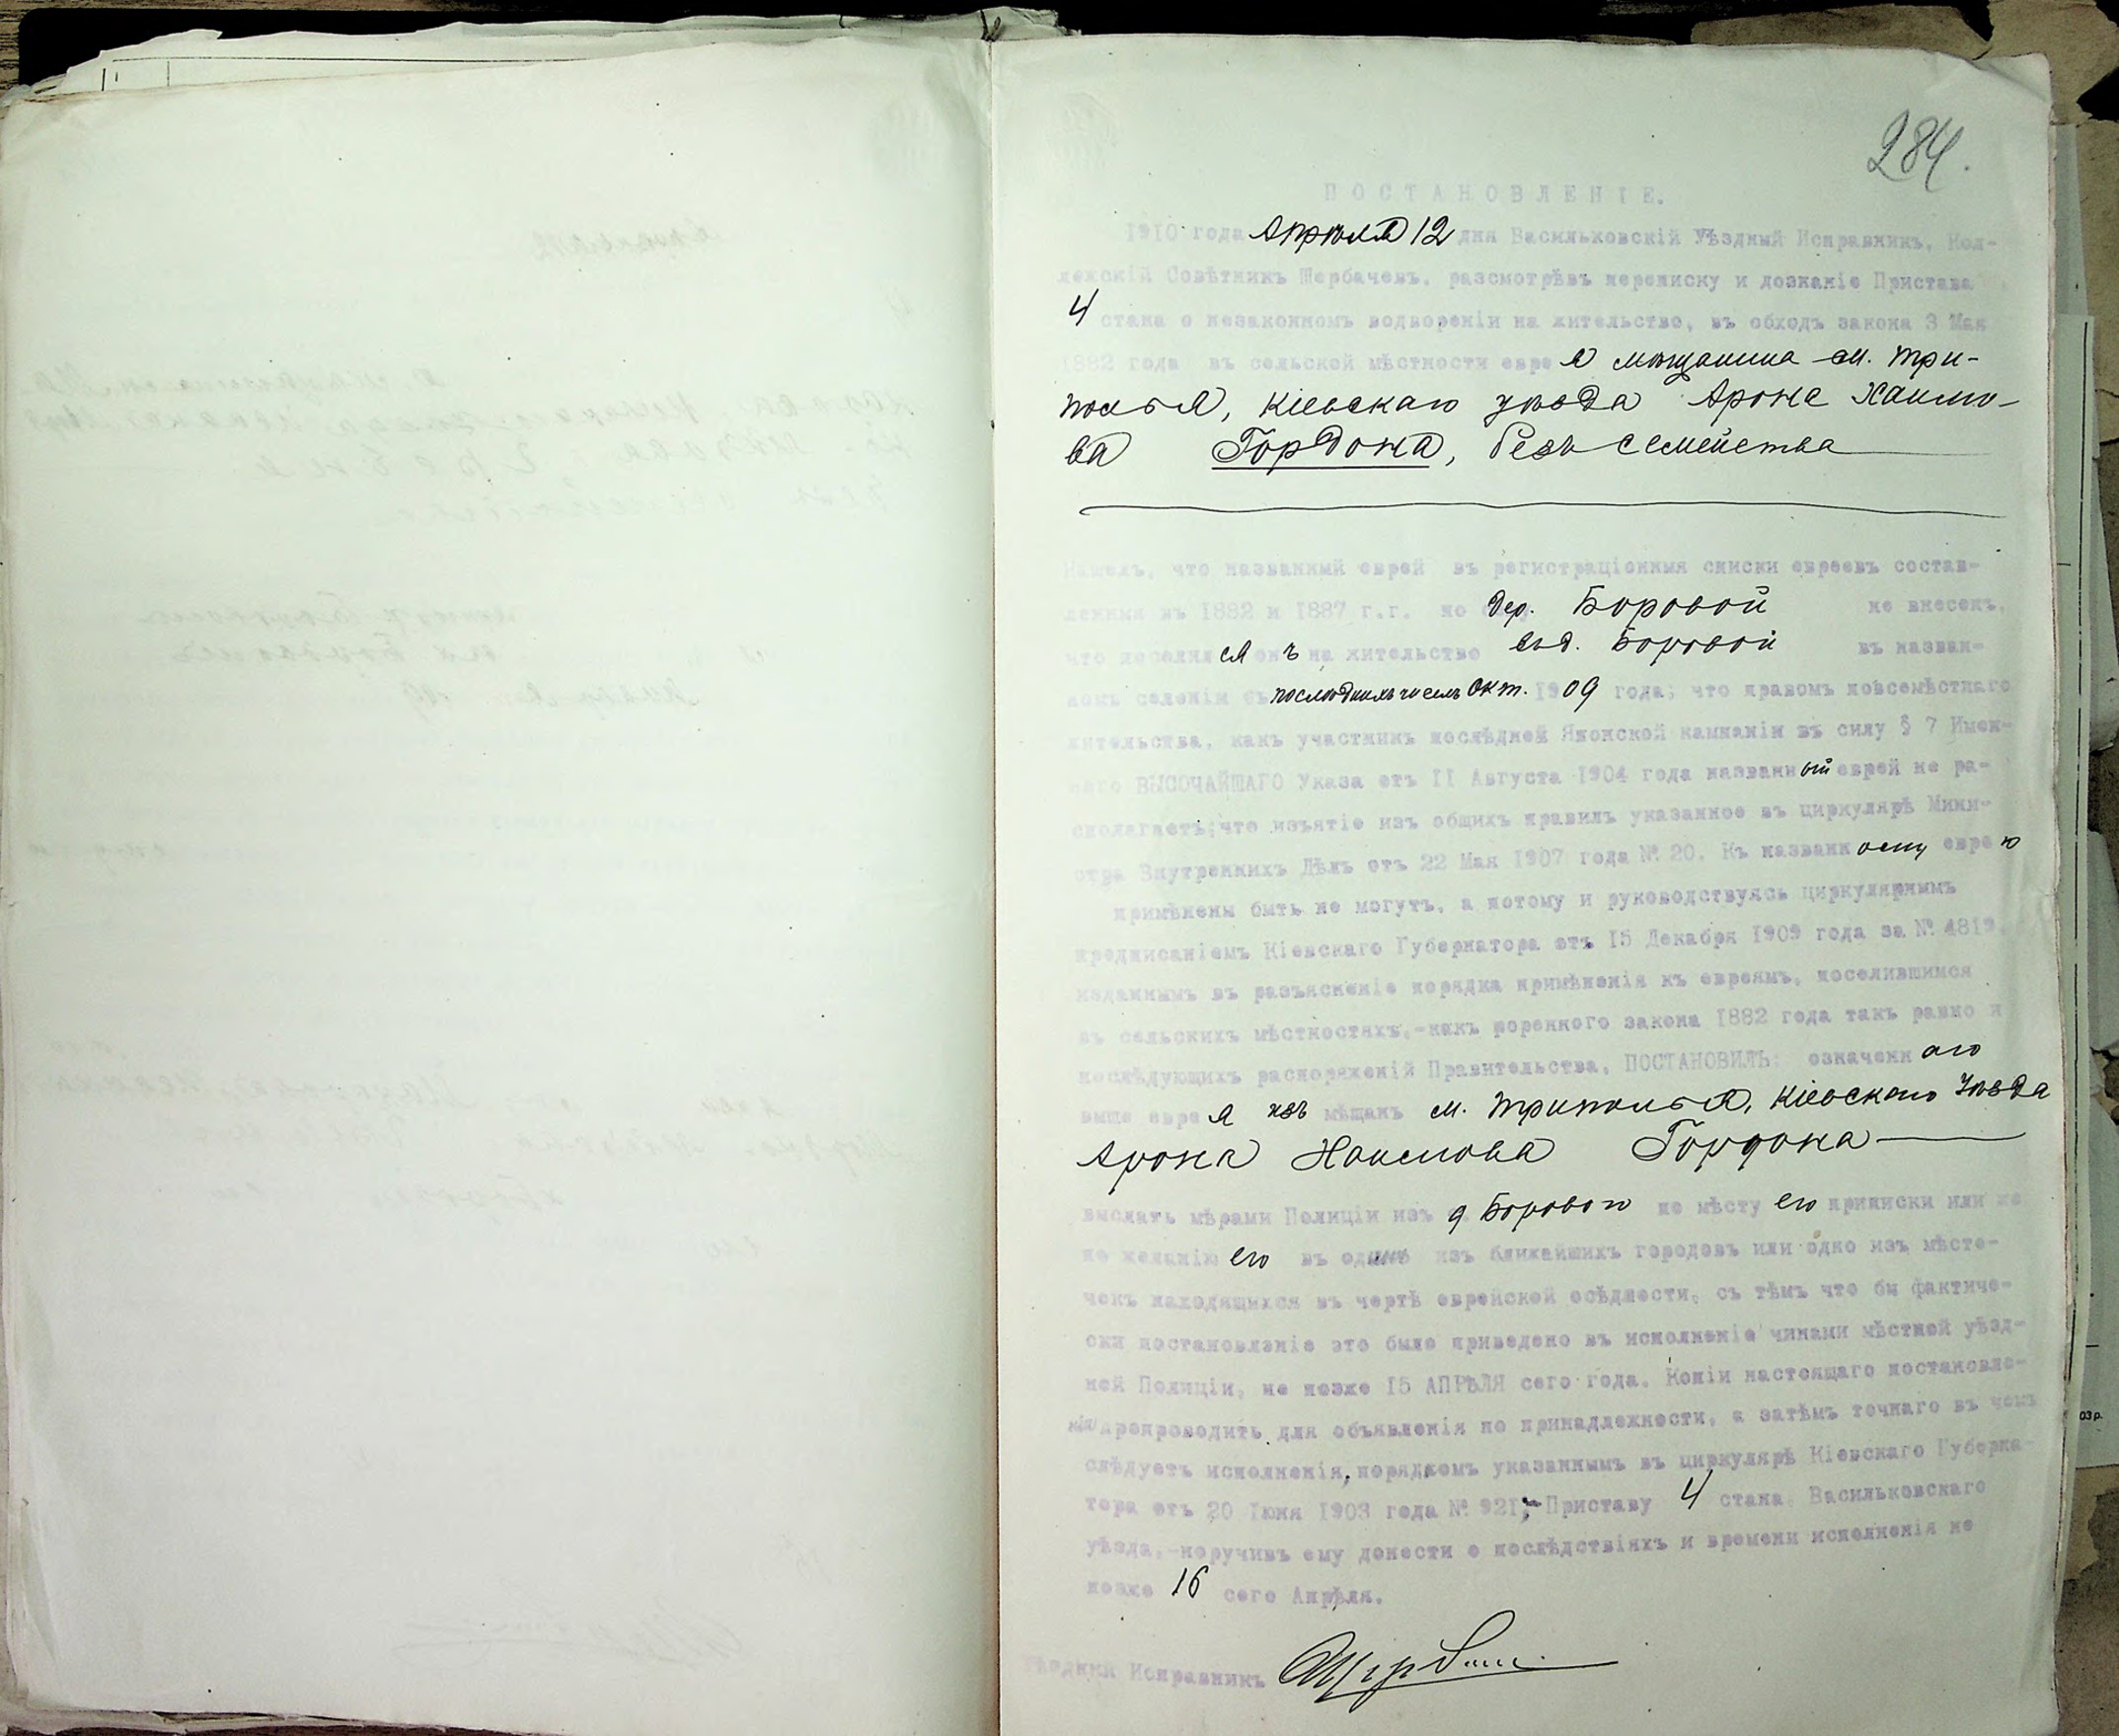 284.
ПОСТАНОВЛЕНІЕ.
1910 года Апрѣля 12 дня Васильковскій Уѣздный Исправникъ, Кол-
лежскій Совѣтникъ Щербачевъ, разсмотрѣвъ переписку и дознаніе Пристава
4 стана о незаконномъ водвореніи на жительство, въ обходъ закона 3 Мая
1882 года въ сельской мѣстности евре я мѣщанина м. Три-
полья, Кіевскаго уѣзда Арона Хаимо-
ва Гордона, безъ семейства
Нашелъ, что названный еврей въ регистраціонныя списки евреевъ состав-
ленныя въ 1882 и 1887 г.г. по дер. Боровой не внесенъ,
что поселился онъ на жительство въ д. Боровой въ назван-
номъ селеніи съ послѣднихъ чиселъ Окт. 1909 года; что правомъ повсемѣстнаго
жительства, какъ участникъ послѣдней Японской кампаніи въ силу § 7 Имен-
наго ВЫСОЧАЙШАГО Указа отъ 11 Августа 1904 года названный еврей не ра-
сполагаетъ; что изъятіе изъ общихъ правилъ указанное въ циркулярѣ Мини-
стра Внутреннихъ Дѣлъ отъ 22 Мая 1907 года № 20. Къ названному еврею
примѣнены быть не могутъ, а потому и руководствуясь циркулярнымъ
предписаніемъ Кіевскаго Губернатора отъ 15 Декабря 1909 года за № 4819.
изданнымъ въ разъясненіе порядка примѣненія къ евреямъ, поселившимся
въ сельскихъ мѣстностяхъ,-какъ коренного закона 1882 года такъ равно и
послѣдующихъ распоряженій Правительства, ПОСТАНОВИЛЪ: означеннаго
выше еврея изъ мѣщанъ м. Триполья, Кіевскаго Уѣзда
Арона Хаимова Гордона
выслать мѣрами Полиціи изъ д Борового по мѣсту его приписки или же
по желанію его въ одинъ изъ ближайшихъ городовъ или одно изъ мѣсте-
чекъ находящихся въ чертѣ еврейской осѣдлости, съ тѣмъ что бы фактиче-
ски постановленіе это было приведено въ исполненіе чинами мѣстной уѣзд-
ной Полиціи, не позже 15 АПРѢЛЯ сего года. Копіи настоящаго постановле-
нія препроводить для объявленія по принадлежности, а затѣмъ точнаго въ чемъ
слѣдуетъ исполненія, порядкомъ указаннымъ въ циркулярѣ Кіевскаго Губерна-
тора отъ 20 Іюня 1903 года № 921,-Приставу 4 стана Васильковскаго
уѣзда,-поручивъ ему донести о послѣдствіяхъ и времени исполненія не
позже 16 сего Апрѣля.
Уѣздный Исправникъ